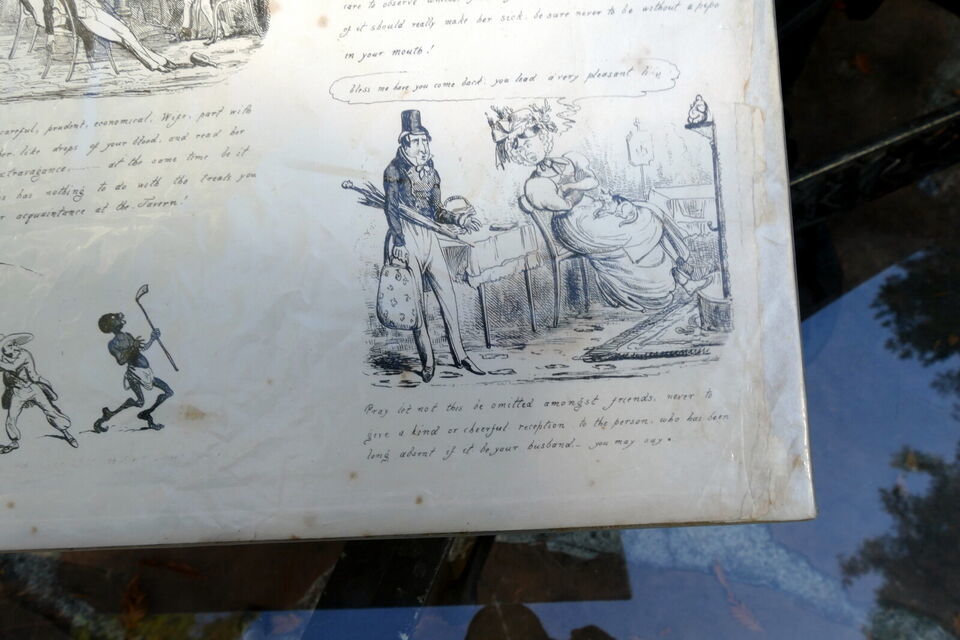 care to observe
if it should really make her sick, be sure never to be without a pipe
in your mouth!
bless me have you come back, you lead a very pleasant
careful, prudent, economical, Wife, part with
like drops of your blood, and read her
extravagance.... at the same time be it
has nothing to do with the treats you
acquaintance at the Tavern!
Pray let not this be omitted amongst friends, never to
give a kind or cheerful reception to the person, who has been
long absent if it be your husband - you may say.